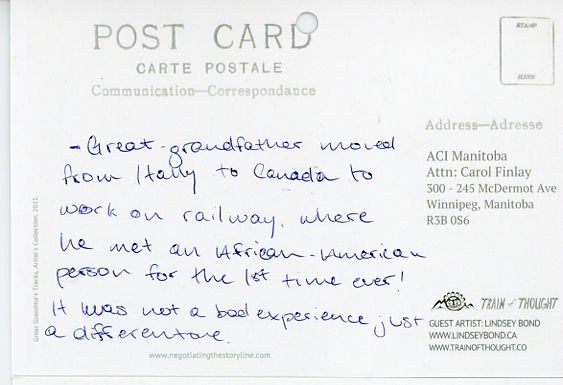 POST CARD
CARTE POSTALE
Communication—Correspondance
STAMP
HERE
- Great-grandfather moved
from Itally to Canada to
work on railway, where
he met an African-American
person for the 1st time ever!
It was not a bad experience just
a differentone.
Address—Adresse
ACI Manitoba
Attn: Carol Finlay
300 - 245 McDermot Ave
Winnipeg, Manitoba
R3B 0S6
TRAIN of THOUGHT
GUEST ARTIST: LINDSEY BOND
WWW.LINDSEYBOND.CA
WWW.TRAINOFTHOUGHT.CO
www.negotiatingthestoryline.com
Great Grandma's Tracks, Artist's Collection, 2011.